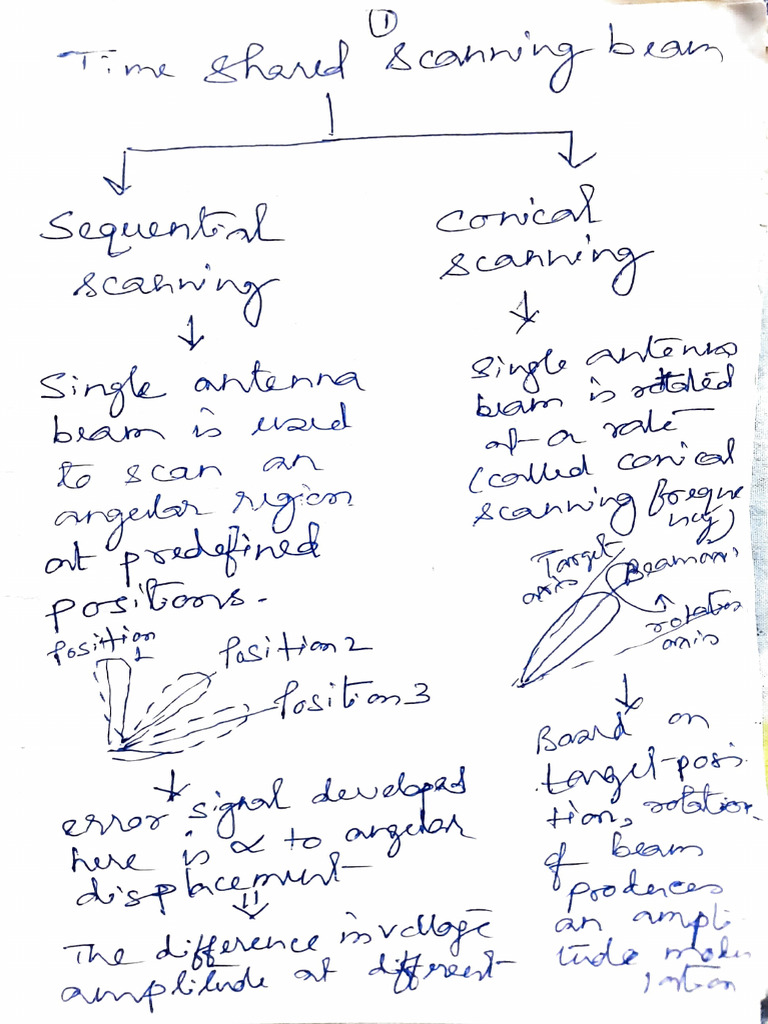 1
Time shared scanning beam
Sequential
scanning
Single antenna
beam is used
to scan an
angular region
at predefined
positions.
Position
1
Position 2
Position 3
error signal developed
here is ∝ to angular
displacement
The difference in voltage
amplitude at different
Conical
scanning
Single antenna
beam is rotated
at a rate
(called conical
scanning freque
ncy)
Target
axis
Beam axis
rotation
axis
Based on
target posi
tion, rotation
of beam
produces
an ampli
tude modu
lation